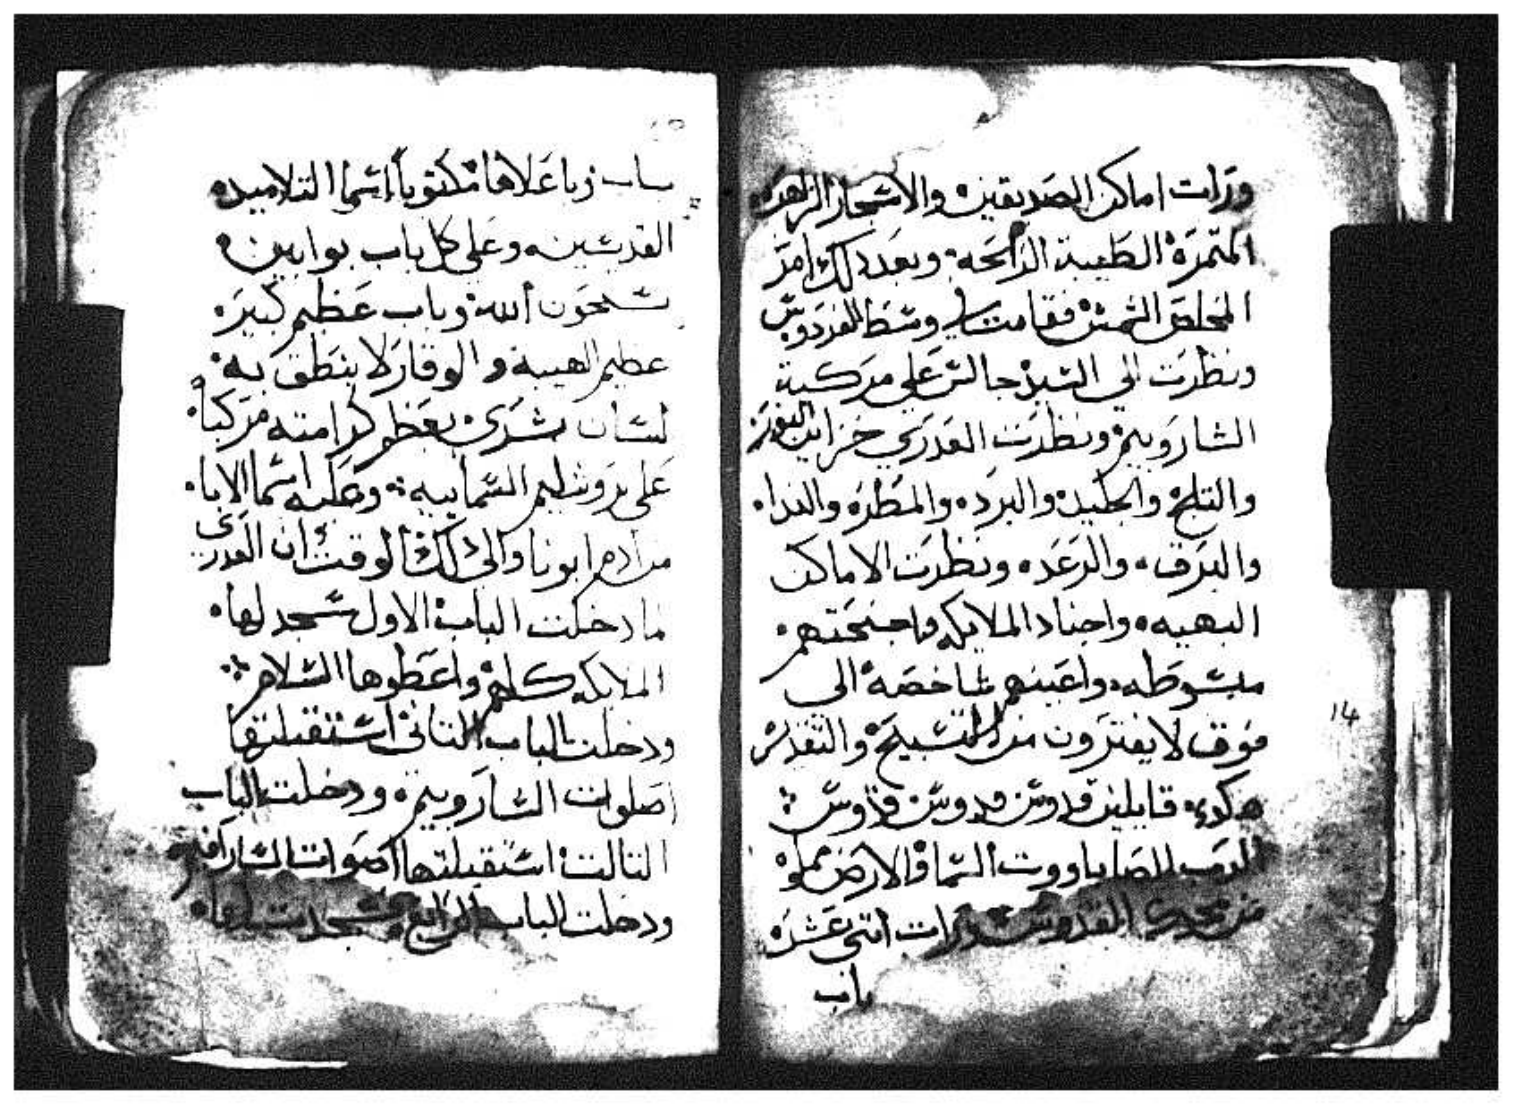 ورات اماكن الصديقين والاشجار الزاهره
المتمرة الطيبة الرائحه وبعد دلك امر
المخلص الشمش فقامت وشط الفردوش
ونظرت الي السيد جالش علي مركبة
الشاروبيم ونظرت العدري خزاين النور
والتلج والجليد والبرد والمطر والندا
والبرق والرعد ونظرت الاماكن
البهيه واجناد الملايكه واجنحتهم
مبشوطه واعينهم شاخصة الى
فوق لا يفترون من التشبيح والتقديش
هكدي قايلين قدوش قدوش قدوش
الرب الصاباووت الشما والارض مملوة
من مجدك القدوش ورات اتني عشر
باب
14
باب زباعلاها مكتوبا اشما التلاميد
القديشين وعلي كل باب بوابين
يشبحون الله وباب عظيم كبير
عظيم الهيبة والوقار لا ينطق به
لشان بشري بعظم كرامته مركبا
علي يروشليم الشماييه وعليه اشما الابا
من ادم ابونا والي دلك الوقت ان العدري
لما دخلت الباب الاول شجد لها
الملايكه كلهم واعطوها الشلام
ودخلت الباب التاني اشتقبلتها
صلوات الشاروبيم ودخلت الباب
التالت اشتقبلتها اصوات الشارافيم
ودخلت الباب الرابع شجدت لها